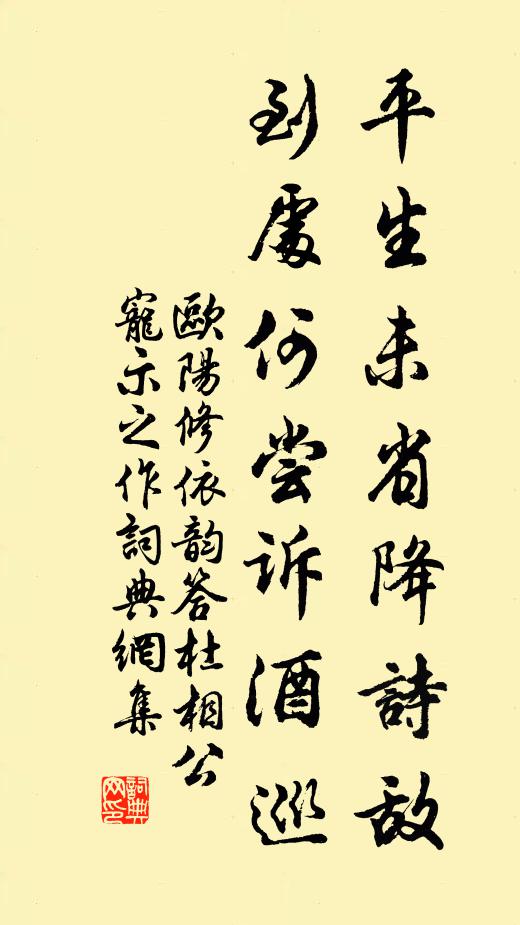 平生未省降詩敵
到處何嘗訴酒巡
歐陽修依韵答杜相公
寵示之作詞典網集
詞典網印